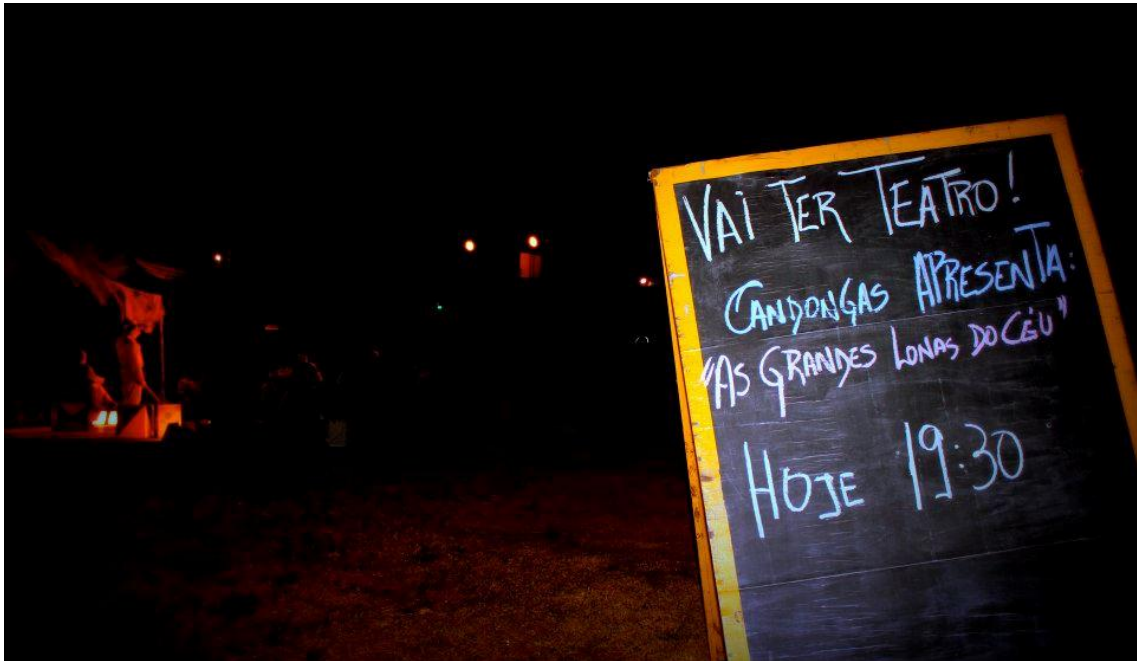 VAI TER TEATRO!
CANDONGAS APRESENTA:
"AS GRANDES LONAS DO CÉU"
HOJE 19:30